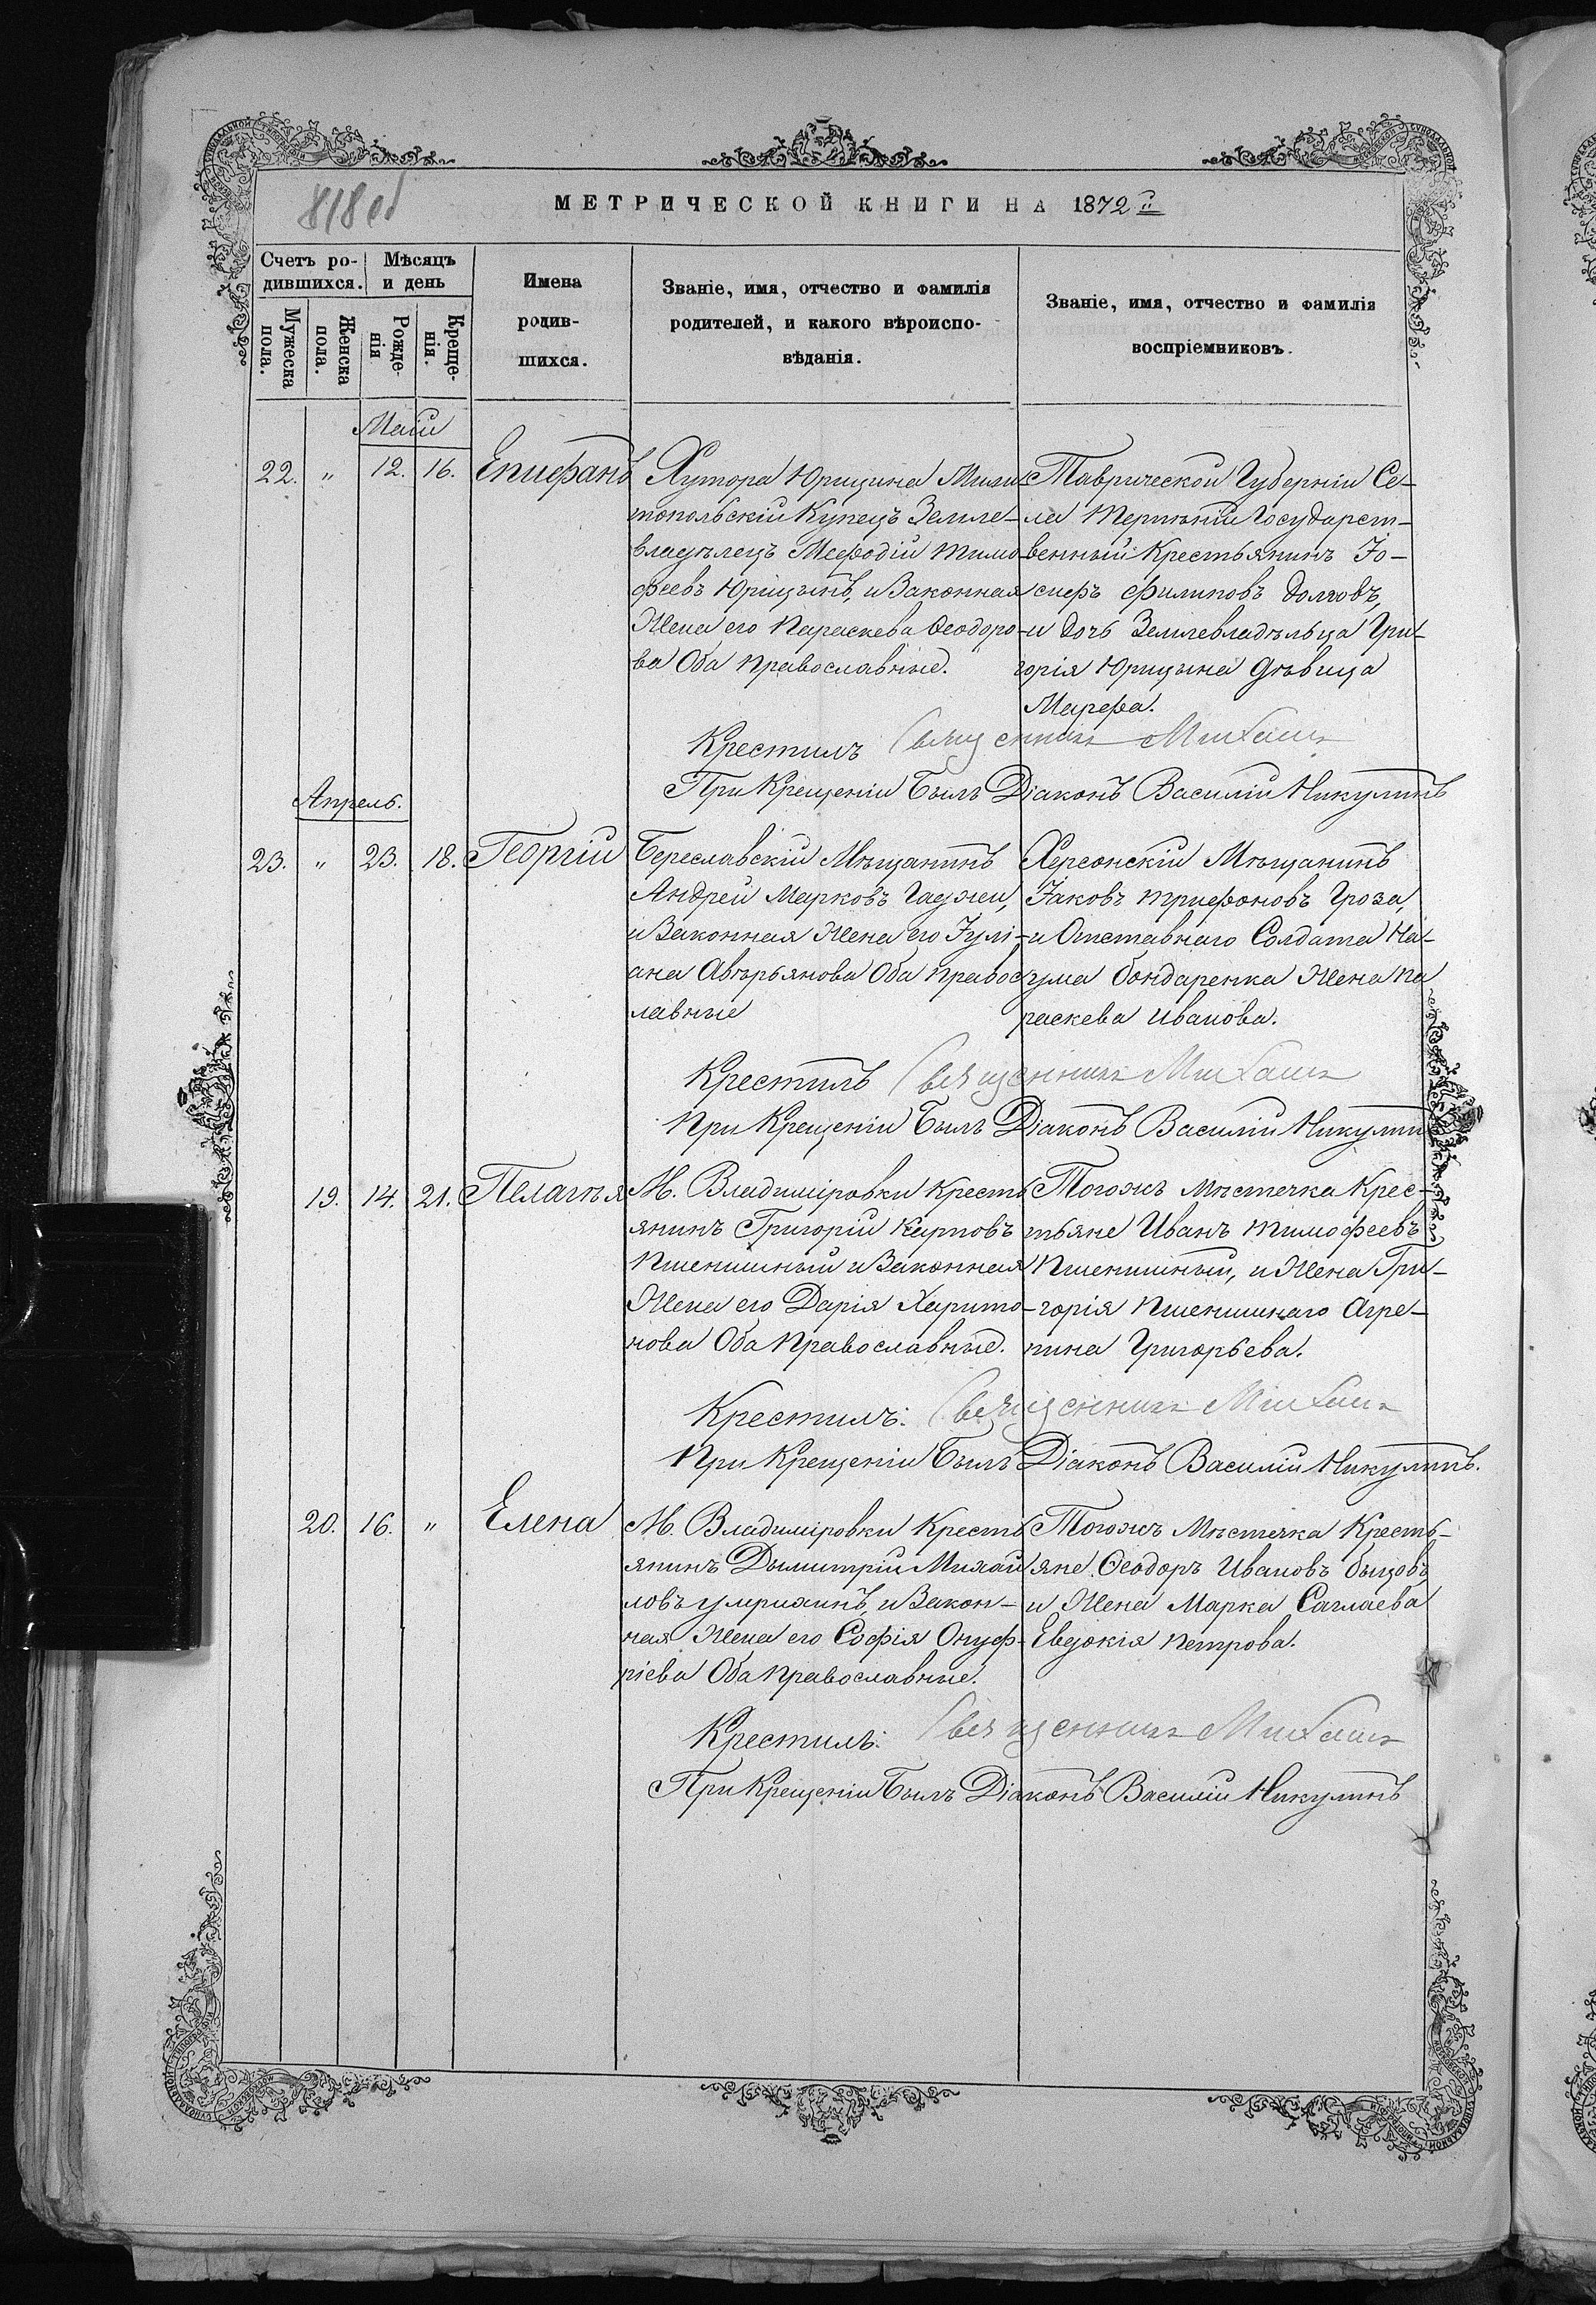 818 об
МЕТРИЧЕСКОЙ КНИГИ НА 1872 й
Счетъ ро-
дившихся.
Мѣсяцъ
и день
Мужеска
пола.
Женска
пола.
Рожде-
нія
Креще-
нія.
Имена
родив-
шихся.
Званіе, имя, отчество и фамилія
родителей, и какого вѣроиспо-
вѣданія.
Званіе, имя, отчество и фамилія
воспріемниковъ.
Маій
22. " 12. 16. Епифанъ
Хутора Юрицина Мили-
топольскій Купецъ Земле-
владѣлецъ Мефодій Тимо-
феевъ Юрицынъ, и Законная
Жена его Параскева Ѳеодоро-
ва Оба Православные.
Таврической Губерніи Се-
ла Терпѣній Государст-
венный Крестьянинъ Іо-
сифъ Филиповъ Долговъ,
и Дочь Землевладѣльца Гри-
горія Юрицына Дѣвица
Марфа.
Крестилъ Священникъ
При Крещеніи Былъ Діаконъ Василій Никулинъ
Апрель.
23. " 23. 18. Георгій
Береславскій Мѣщанинъ
Андрей Марковъ Гаджи,
и Законная Жена его Іулі-
ана Авѣрьянова Оба Правос
лавные
Херсонскій Мѣщанинъ
Іаковъ Трифоновъ Гроза,
и Отставнаго Солдата На-
ума Бондаренка Жена Па
раскева Иванова.
Крестилъ Священникъ
При Крещеніи Былъ Діаконъ Василій Никулинъ
19. 14. 21. Пелагѣя
М. Владиміровки Кресть
янинъ Григорій Карповъ
Пшенишный и Законная
Жена его Дарія Харито-
нова Оба Православные.
Тогожъ Мѣстечка Крес-
тьяне Иванъ Тимофеевъ
Пшенишный, и Жена Гри-
горія Пшенишнаго Агре-
пина Григорьева.
Крестилъ: Священникъ
При Крещеніи Былъ Діаконъ Василій Никулинъ.
20. 16. " Елена
М. Владиміровки Кресть
янинъ Дымитрій Михай
ловъ Умрихинъ, и Закон-
ная Жена его Софія Онуф-
ріева Оба Православные.
Тогожъ Мѣстечка Кресть-
яне Ѳеодоръ Ивановъ
и Жена Марка Саглаева
Евдокія Петрова.
Крестилъ: Священникъ
При Крещеніи Былъ Діаконъ Василій Никулинъ